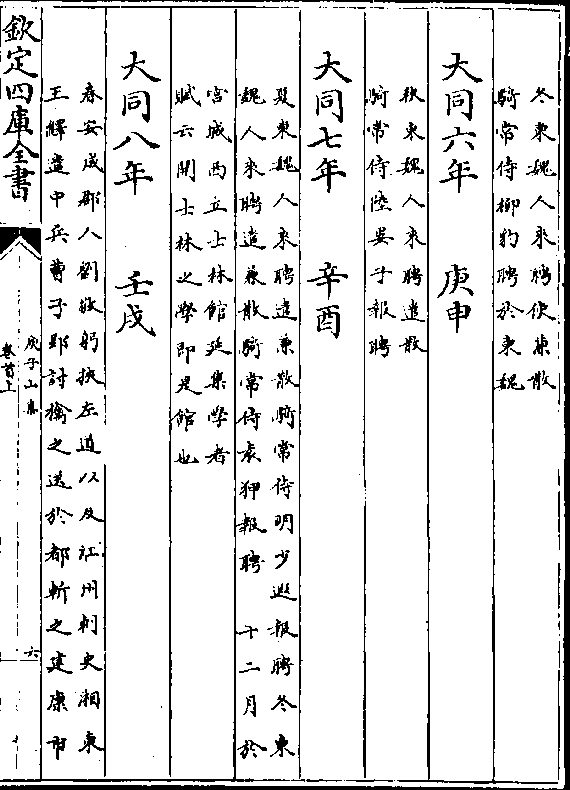 冬東魏人來聘使兼散
騎常侍柳豹聘於東魏
大同六年　庚申
秋東魏人來聘遣散
騎常侍陸晏子報聘
大同七年　辛酉
夏東魏人來聘遣兼散騎常侍明少遐報聘冬東
魏人來聘遣兼散騎常侍袁狎報聘　十二月於
宮城西立士林館延集學者
賦云開士林之學即是館也
大同八年　壬戌
春安成郡人劉敬躬挾左道以反江州刺史湘東
王繹遣中兵曹子郢討擒之送於都斬之建康市
欽定四庫全書
庾子山集
卷首上
六